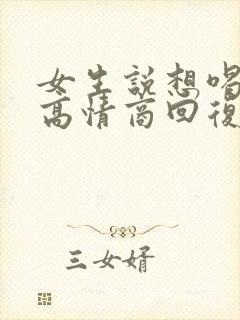 女生説想喝
高情商回復
三女婿